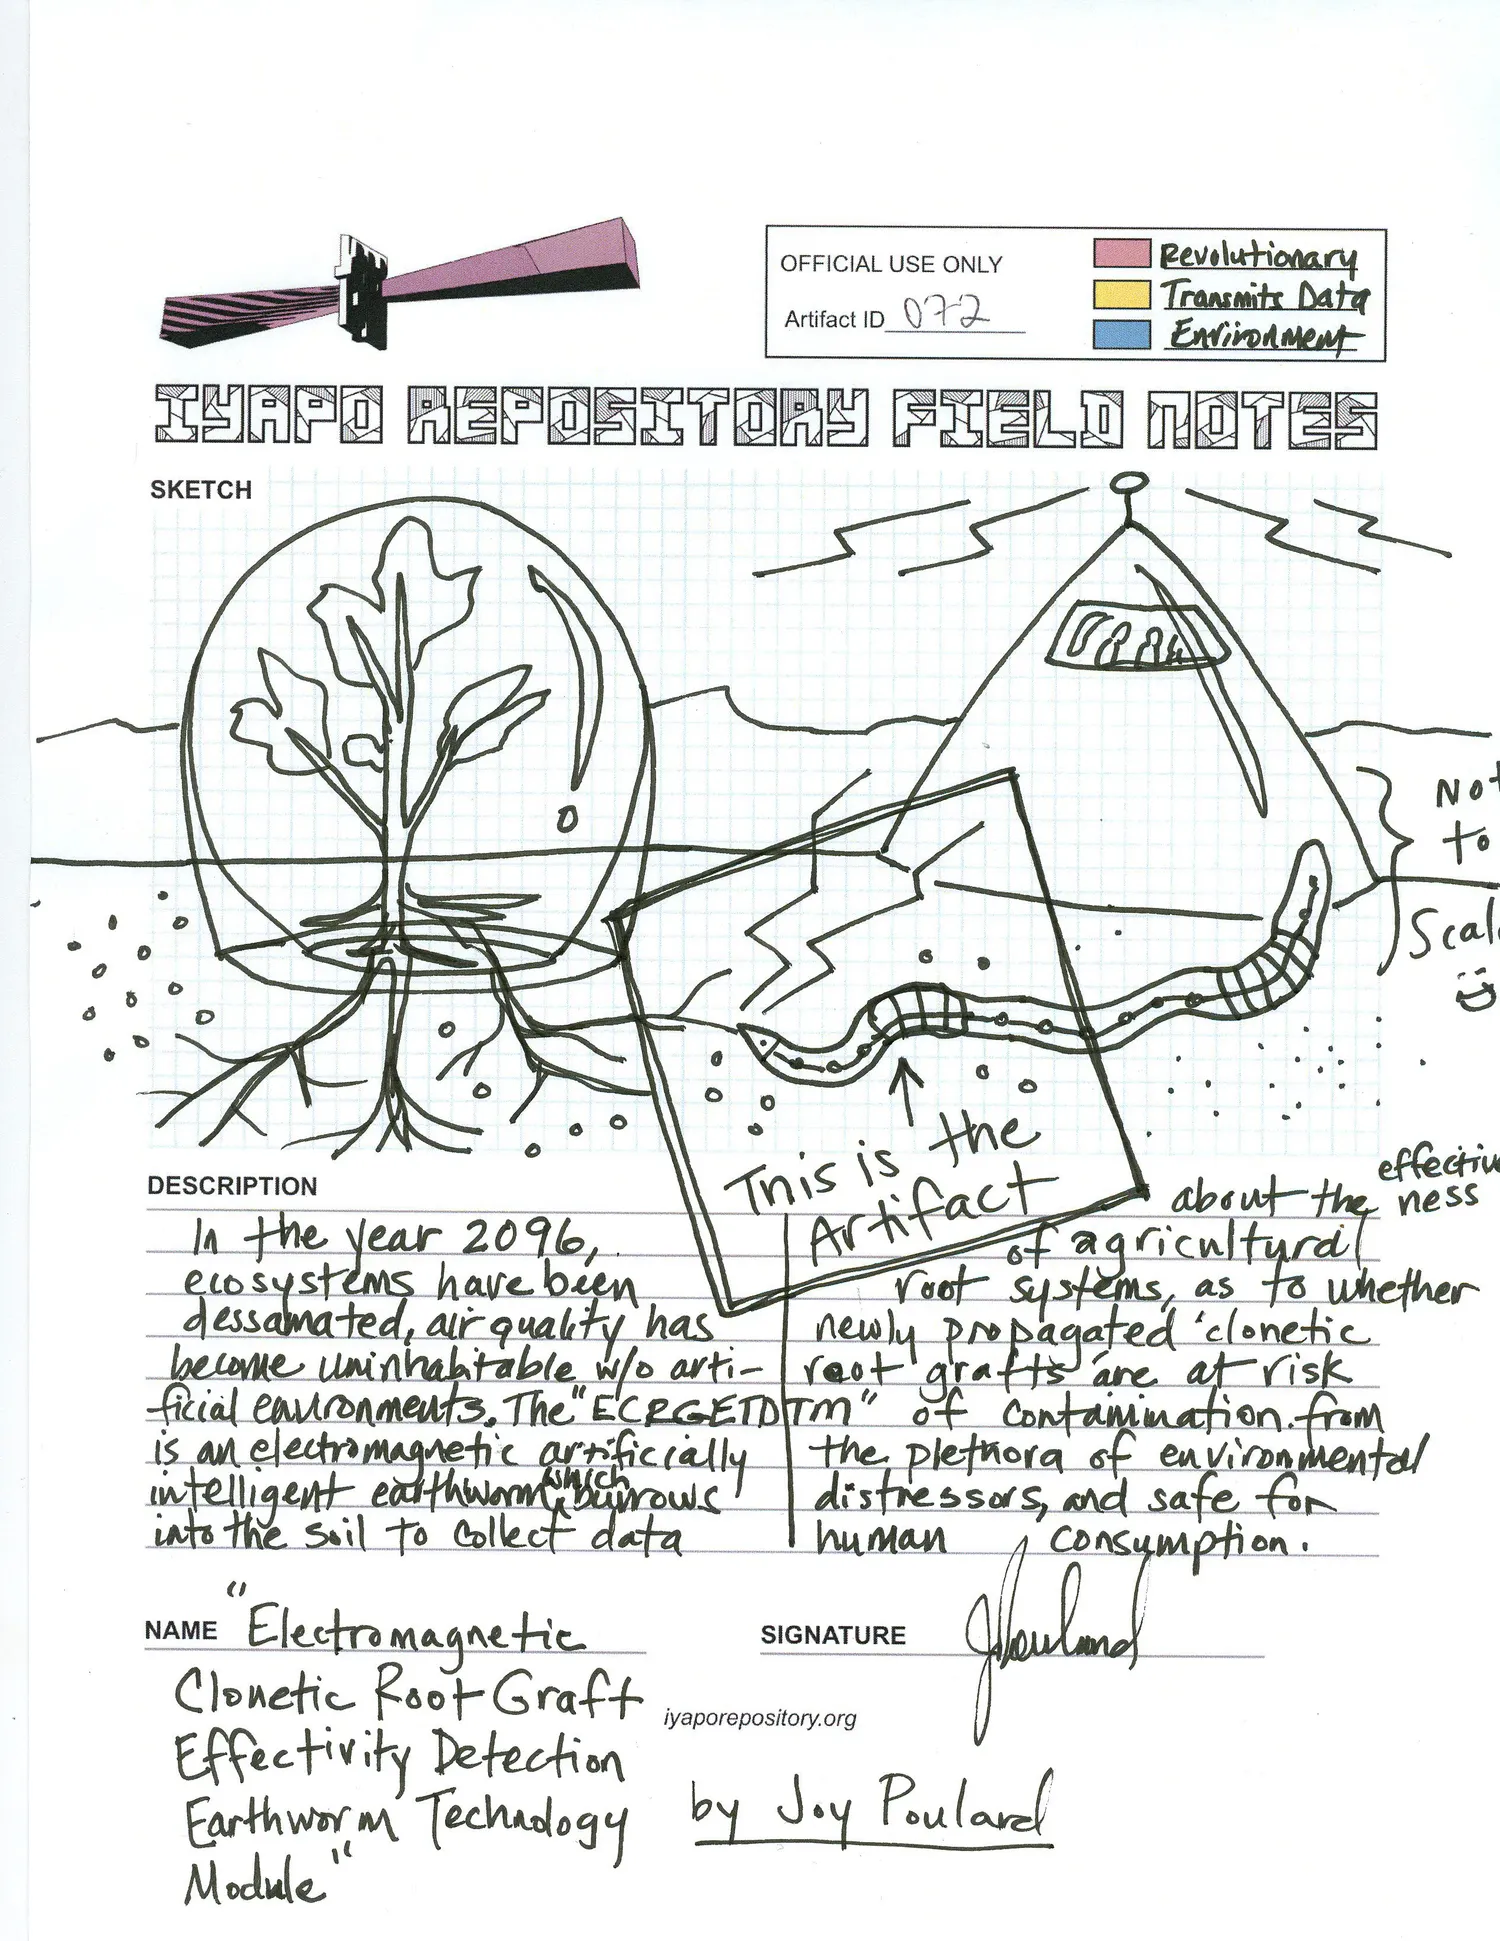 OFFICIAL USE ONLY
Artifact ID 072
Revolutionary
Transmits Data
Environment
IYAPO REPOSITORY FIELD NOTES
SKETCH
Not
to
Scal
This is the
Artifact
DESCRIPTION
In the year 2096,
ecosystems have been
dessamated, air quality has
become uninhabitable w/o arti-
ficial environments. The "ECRGETDTM"
is an electromagnetic artificially
intelligent earthworm which burrows
into the soil to collect data
about the effective
ness
of agricultural
root systems, as to whether
newly propagated 'clonetic
root grafts' are at risk
of contamination from
the plethora of environmental
distressors, and safe for
human consumption.
NAME "Electromagnetic
Clonetic Root Graft
Effectivity Detection
Earthworm Technology
Module"
SIGNATURE JPoulard
iyaporepository.org
by Joy Poulard